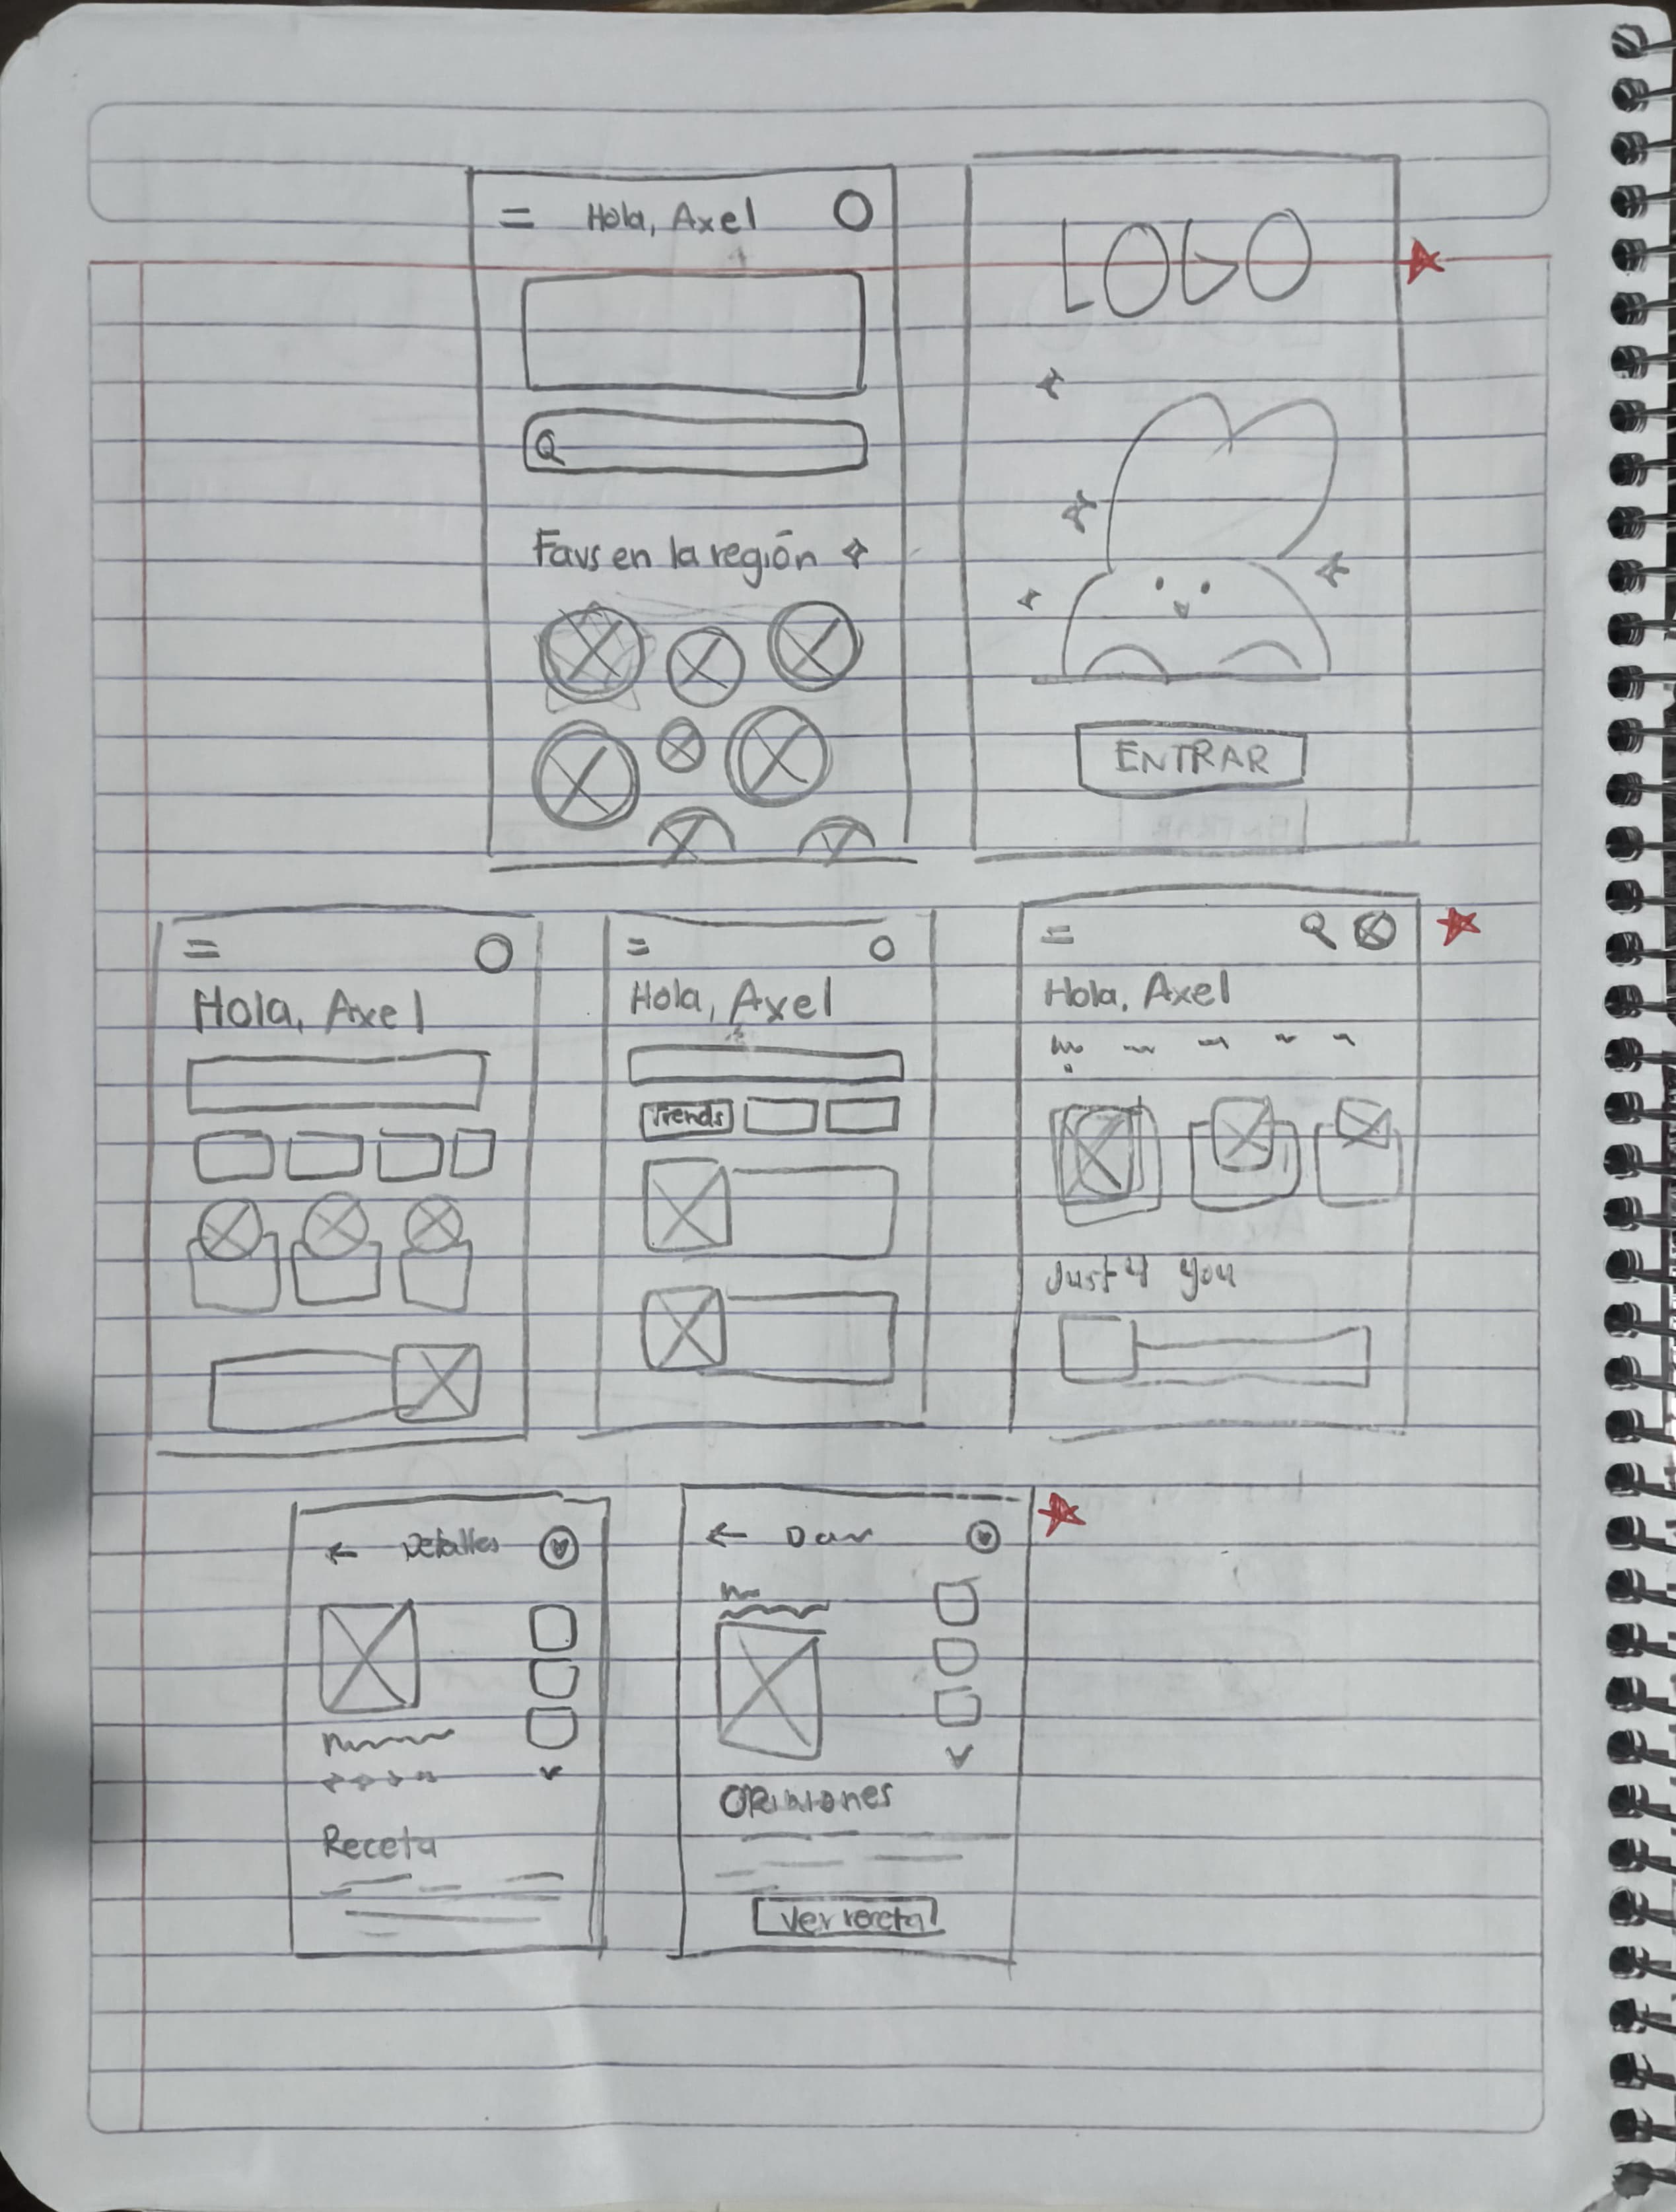 Hola, Axel
Favs en la región
LOGO
ENTRAR
Hola, Axel
Hola, Axel
Trends
Hola, Axel
Just 4 you
Detalles
Receta
Opiniones
Ver receta